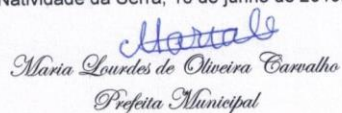 Natividade da Serra, 18 de junho de 2018.
Maria Lourdes de Oliveira Carvalho
Prefeita Municipal